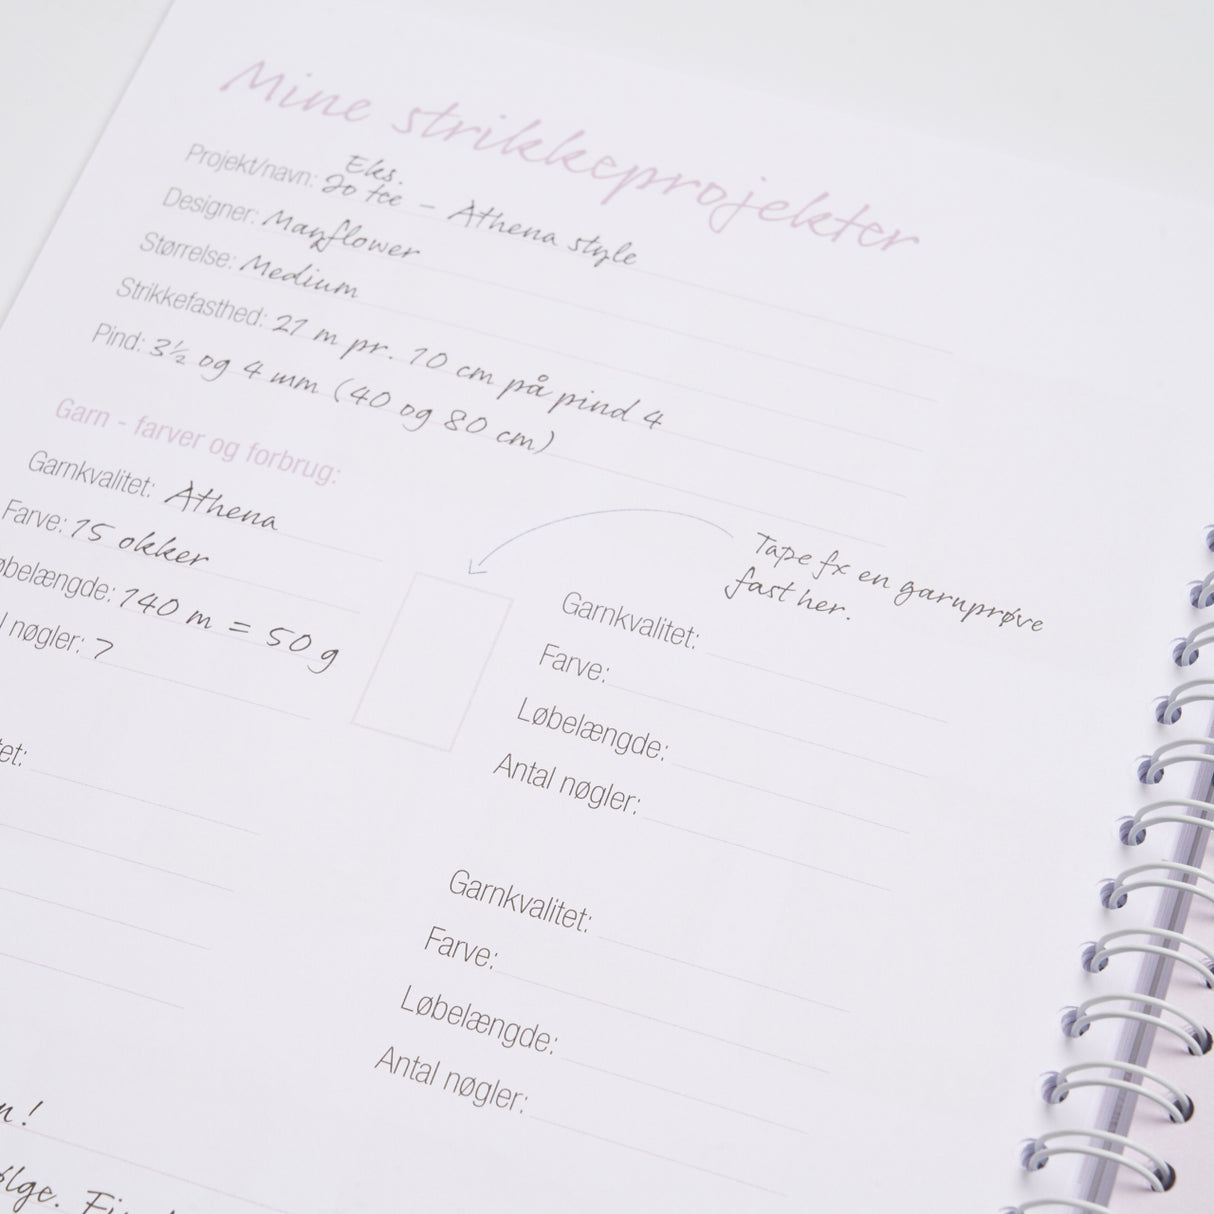 Mine strikkeprojekter
Eks.
Projekt/navn: 20 tee - Athena style
Designer: Mayflower
Størrelse: Medium
Strikkefasthed: 21 m pr. 10 cm på pind 4
Pind: 3½ og 4 mm (40 og 80 cm)
Garn - farver og forbrug:
Garnkvalitet: Athena
Farve: 15 okker
øbelængde: 140 m = 50 g
l nøgler: 7
Tape fx en garnprøve
fast her.
Garnkvalitet:
Farve:
Løbelængde:
Antal nøgler:
tet:
Garnkvalitet:
Farve:
Løbelængde:
Antal nøgler:
n!
ølge.